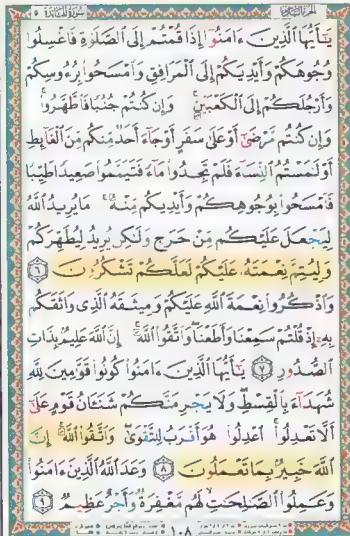 سورة المائدة ٥
يَٰٓأَيُّهَا ٱلَّذِينَ ءَامَنُوٓا۟ إِذَا قُمْتُمْ إِلَى ٱلصَّلَوٰةِ فَٱغْسِلُوا۟
وُجُوهَكُمْ وَأَيْدِيَكُمْ إِلَى ٱلْمَرَافِقِ وَٱمْسَحُوا۟ بِرُءُوسِكُمْ
وَأَرْجُلَكُمْ إِلَى ٱلْكَعْبَيْنِ ۚ وَإِن كُنتُمْ جُنُبًا فَٱطَّهَّرُوا۟ ۚ
وَإِن كُنتُم مَّرْضَىٰٓ أَوْ عَلَىٰ سَفَرٍ أَوْ جَآءَ أَحَدٌ مِّنكُم مِّنَ ٱلْغَآئِطِ
أَوْ لَٰمَسْتُمُ ٱلنِّسَآءَ فَلَمْ تَجِدُوا۟ مَآءً فَتَيَمَّمُوا۟ صَعِيدًا طَيِّبًا
فَٱمْسَحُوا۟ بِوُجُوهِكُمْ وَأَيْدِيكُم مِّنْهُ ۚ مَا يُرِيدُ ٱللَّهُ
لِيَجْعَلَ عَلَيْكُم مِّنْ حَرَجٍ وَلَٰكِن يُرِيدُ لِيُطَهِّرَكُمْ
وَلِيُتِمَّ نِعْمَتَهُۥ عَلَيْكُمْ لَعَلَّكُمْ تَشْكُرُونَ ٦
وَٱذْكُرُوا۟ نِعْمَةَ ٱللَّهِ عَلَيْكُمْ وَمِيثَٰقَهُ ٱلَّذِى وَاثَقَكُم
بِهِۦٓ إِذْ قُلْتُمْ سَمِعْنَا وَأَطَعْنَا ۖ وَٱتَّقُوا۟ ٱللَّهَ ۚ إِنَّ ٱللَّهَ عَلِيمٌۢ بِذَاتِ
ٱلصُّدُورِ ٧ يَٰٓأَيُّهَا ٱلَّذِينَ ءَامَنُوا۟ كُونُوا۟ قَوَّٰمِينَ لِلَّهِ
شُهَدَآءَ بِٱلْقِسْطِ ۖ وَلَا يَجْرِمَنَّكُمْ شَنَـَٔانُ قَوْمٍ عَلَىٰٓ
أَلَّا تَعْدِلُوا۟ ۚ ٱعْدِلُوا۟ هُوَ أَقْرَبُ لِلتَّقْوَىٰ ۖ وَٱتَّقُوا۟ ٱللَّهَ ۚ إِنَّ
ٱللَّهَ خَبِيرٌۢ بِمَا تَعْمَلُونَ ٨ وَعَدَ ٱللَّهُ ٱلَّذِينَ ءَامَنُوا۟
وَعَمِلُوا۟ ٱلصَّٰلِحَٰتِ ۙ لَهُم مَّغْفِرَةٌ وَأَجْرٌ عَظِيمٌ ٩
١٠٨